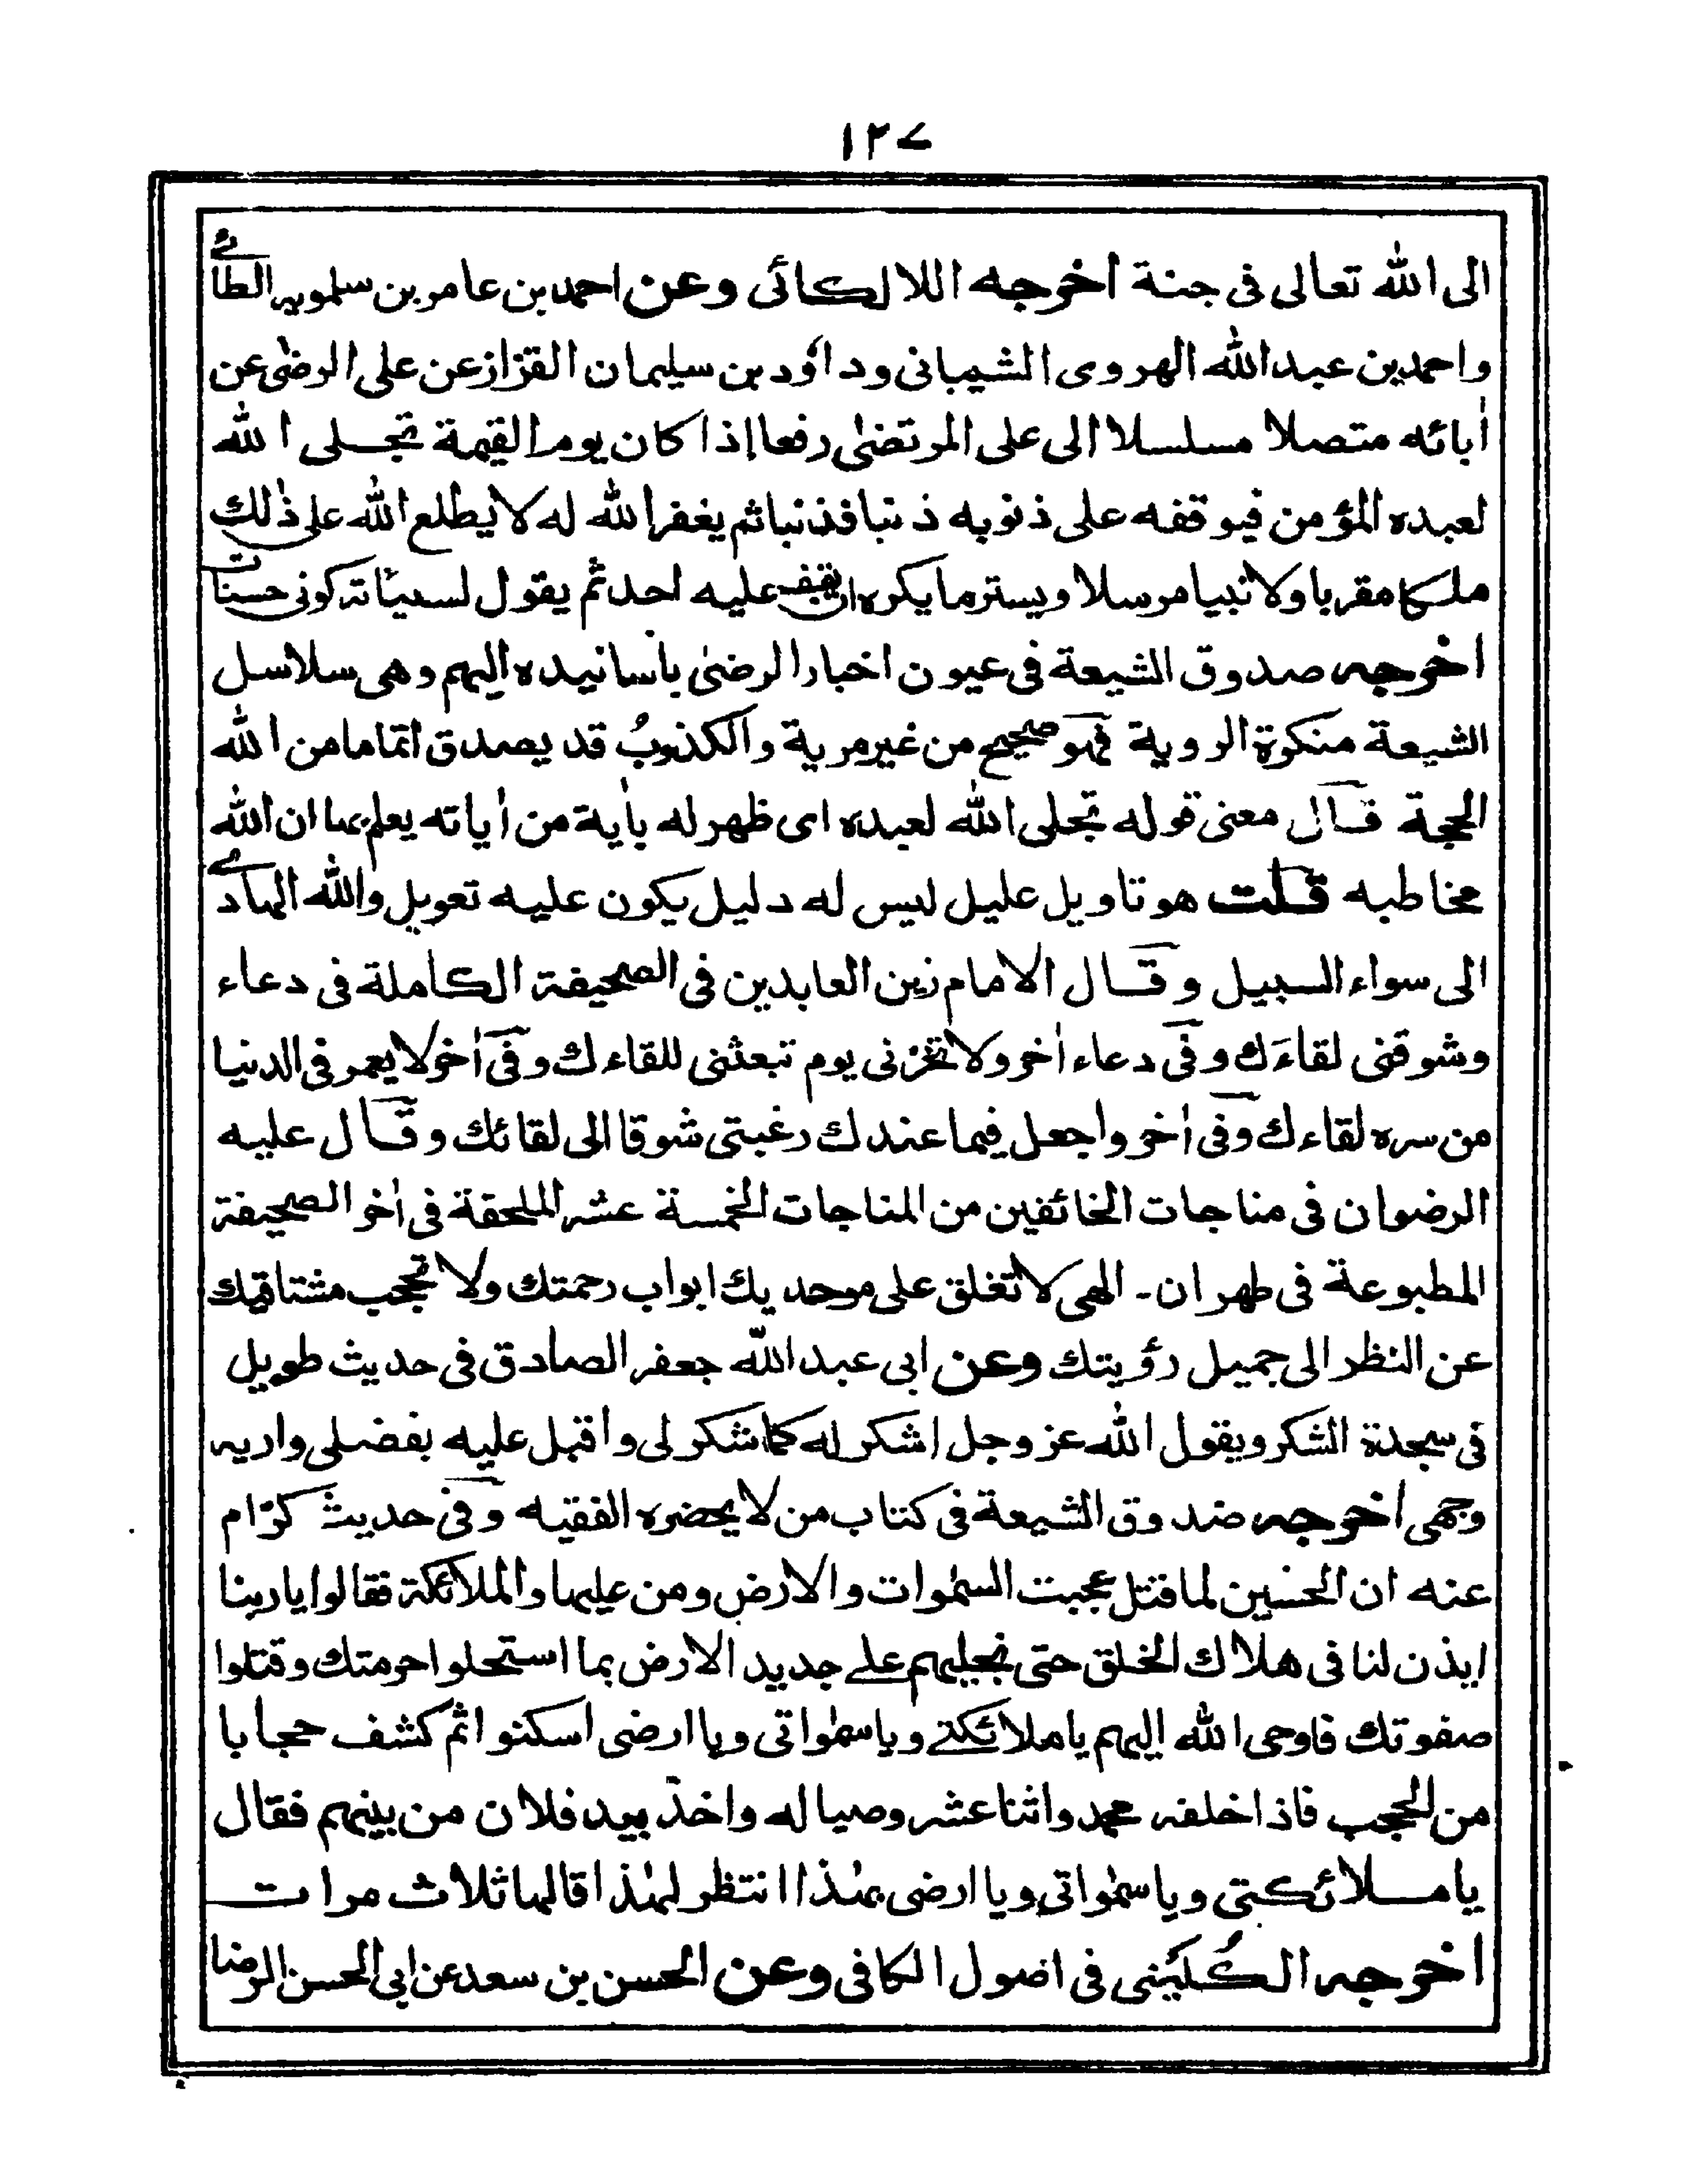 ١٢٧
الى الله تعالى فى جنة اخرجه اللالكائى وعن احمد بن عامر بن سلمويه الطائے
واحمد بن عبد الله الهروى الشيبانى وداوٗد بن سليمان القزاز عن على الرضىٰ عن
اٰبائه متصلا مسلسلا الى على المرتضىٰ رفعا اذا كان يوم القيمة تجلى الله
لعبده المؤمن فيوقفه على ذنوبه ذنبا فذنبا ثم يغفر الله له لا يطلع الله على ذٰلك
ملكا مقربا ولا نبيا مرسلا ويستر ما يكره ان يقف عليه احد ثم يقول لسيئاته كونى حسنات
اخرجه صدوق الشيعة فى عيون اخبار الرضىٰ بأسانيده اليهم وهى سلاسل
الشيعة منكرة الروية فهو صحيح من غير مرية والكذوبُ قد يصدق اتماما من الله
الحجة قال معنى قوله تجلى الله لعبده اى ظهر له باٰية من اٰياته يعلم بها ان الله
مخاطبه قلت هو تاويل عليل ليس له دليل يكون عليه تعويل والله الهادے
الى سواء السبيل وقال الامام زين العابدين فى الصحيفة الكاملة فى دعاء
وشوقنى لقاءَك وفى دعاء اٰخر ولا تخزنى يوم تبعثنى للقاءك وفى اٰخر لا يعمر فى الدنيا
من سره لقاءك وفى اٰخر واجعل فيما عندك رغبتى شوقا الى لقائك وقال عليه
الرضوان فى مناجات الخائفين من المناجات الخمسة عشر الملحقة فى اٰخر الصحيفة
المطبوعة فى طهران۔ الهى لا تغلق على موحديك ابواب رحمتك ولا تحجب مشتاقيك
عن النظر الى جميل رؤيتك وعن ابى عبد الله جعفر الصادق فى حديث طويل
فى سجدة الشكر ويقول الله عز وجل اشكر له كما شكر لى واقبل عليه بفضلى واريه
وجهى اخرجه ضدوق الشيعة فى كتاب من لا يحضره الفقيه وفى حديث كرّام
عنه ان الحسين لما قتل عجبت السمٰوات والارض ومن عليها والملائكة فقالوا يا ربنا
ايذن لنا فى هلاك الخلق حتى نجليهم علے جديد الارض بما استحلوا حرمتك وقتلوا
صفوتك فاوحى الله اليهم يا ملائكتے ويا سمٰواتى ويا ارضى اسكنوا ثم كشف حجابا
من الحجب فاذا خلفه محمد واثنا عشر وصيا له واخذ بيد فلان من بينهم فقال
يا ملائكتى ويا سمٰواتى ويا ارضى بهٰذا انتظر لهٰذا قالها ثلاث مرات
اخرجه الكُلَيْنى فى اضول الكافى وعن الحسن بن سعد عن ابى الحسن الرضا